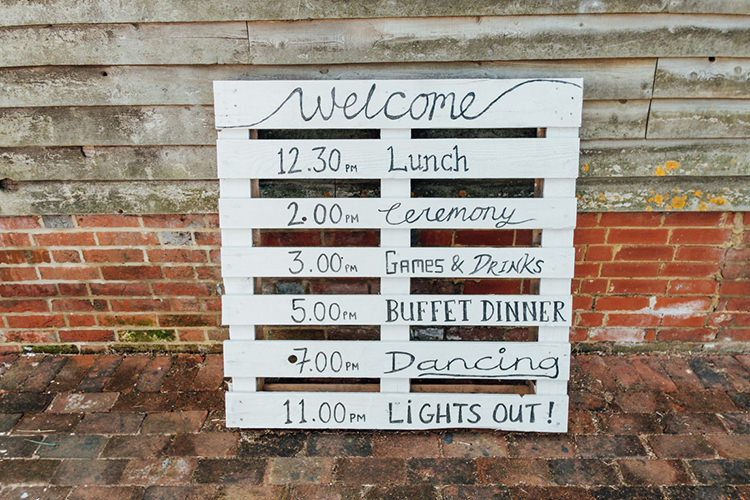 Welcome
12.30 PM Lunch
2.00 PM Ceremony
3.00 PM GAMES & DRINKS
5.00 PM BUFFET DINNER
7.00 PM Dancing
11.00 PM LiGHTS OUT!